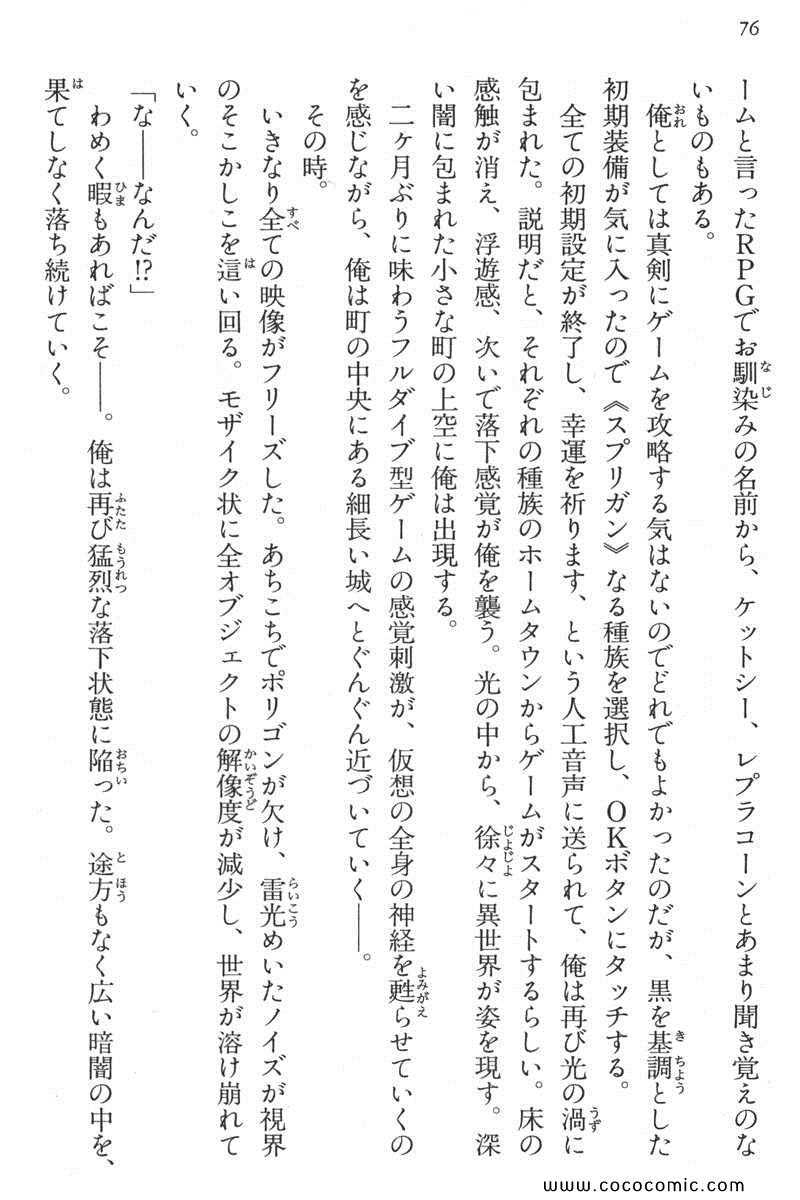 76
ームと言ったRPGでお馴染みの名前から、ケットシー、レプラコーンとあまり聞き覚えのな
いものもある。
俺としては真剣にゲームを攻略する気はないのでどれでもよかったのだが、黒を基調とした
初期装備が気に入ったので《スプリガン》なる種族を選択し、OKボタンにタッチする。
全ての初期設定が終了し、幸運を祈ります、という人工音声に送られて、俺は再び光の渦に
包まれた。説明だと、それぞれの種族のホームタウンからゲームがスタートするらしい。床の
感触が消え、浮遊感、次いで落下感覚が俺を襲う。光の中から、徐々に異世界が姿を現す。深
い闇に包まれた小さな町の上空に俺は出現する。
二ヶ月ぶりに味わうフルダイブ型ゲームの感覚刺激が、仮想の全身の神経を甦らせていくの
を感じながら、俺は町の中央にある細長い城へとぐんぐん近づいていく――。
その時。
いきなり全ての映像がフリーズした。あちこちでポリゴンが欠け、雷光めいたノイズが視界
のそこかしこを這い回る。モザイク状に全オブジェクトの解像度が減少し、世界が溶け崩れて
いく。
「な――なんだ!?」
わめく暇もあればこそ――。俺は再び猛烈な落下状態に陥った。途方もなく広い暗闇の中を、
果てしなく落ち続けていく。
www.cococomic.com